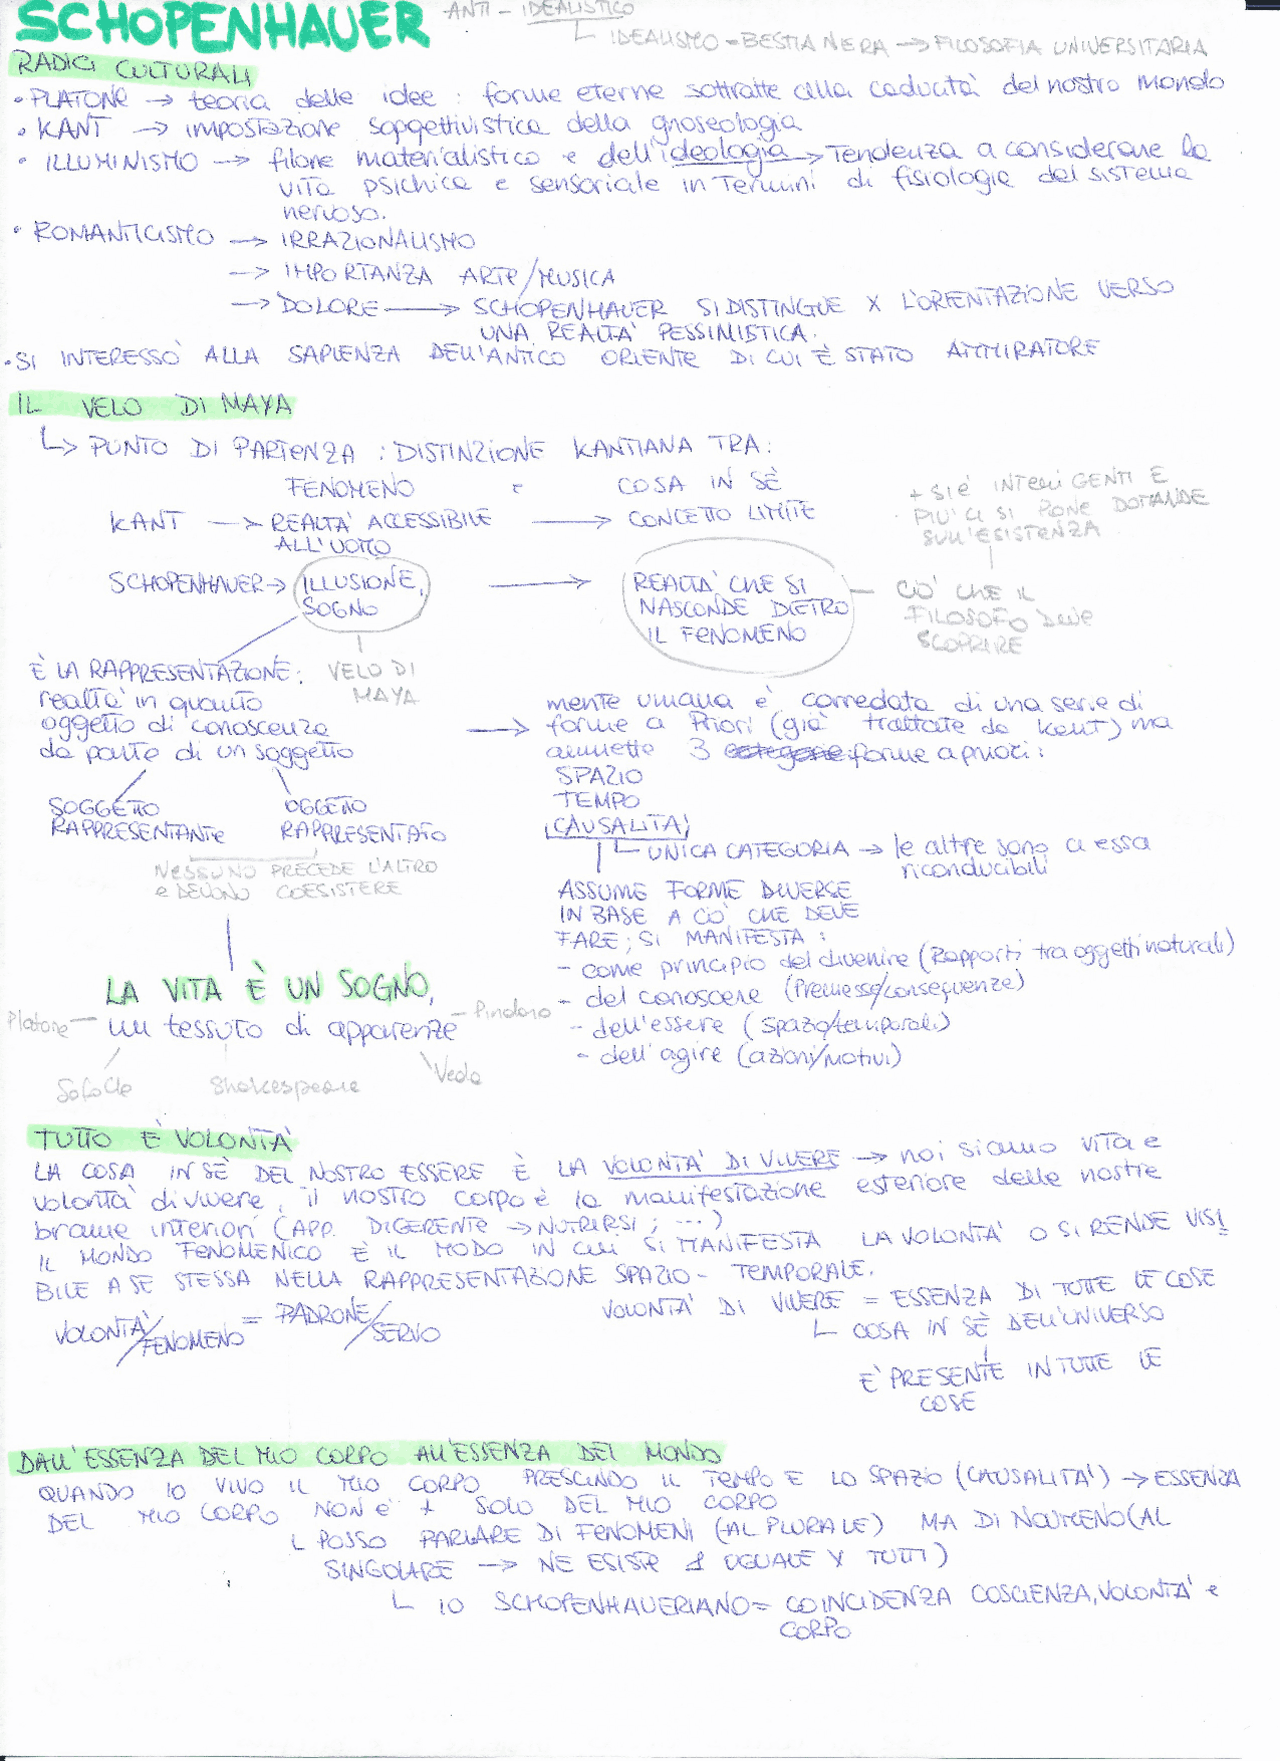 SCHOPENHAUER ANTI-IDEALISTICO
└ IDEALISMO = BESTIA NERA → FILOSOFIA UNIVERSITARIA
RADICI CULTURALI
• PLATONE → teoria delle idee : forme eterne sottratte alla caducità del nostro mondo
• KANT → IMPOSTAZIONE soggettivistica della gnoseologia
• ILLUMINISMO → filone materialistico e dell'ideologia → Tendenza a considerare la
vita psichica e sensoriale in Termini di fisiologia del sistema
nervoso.
• ROMANTICISMO → IRRAZIONALISMO
→ IMPORTANZA ARTE/MUSICA
→ DOLORE → SCHOPENHAUER SI DISTINGUE X L'ORIENTAZIONE VERSO
UNA REALTA' PESSIMISTICA.
• SI INTERESSÒ ALLA SAPIENZA DELL'ANTICO ORIENTE DI CUI È STATO AMMIRATORE
IL VELO DI MAYA
└> PUNTO DI PARTENZA : DISTINZIONE KANTIANA TRA :
FENOMENO e COSA IN SÈ
KANT → REALTA' ACCESSIBILE → CONCETTO LIMITE
ALL'UOMO
+ SI È INTELLIGENTI E
PIU' CI SI PONE DOMANDE
SULL'ESISTENZA
SCHOPENHAUER → ILLUSIONE, → REALTA' CHE SI
SOGNO NASCONDE DIETRO
IL FENOMENO
CIO' CHE IL
FILOSOFO DEVE
SCOPRIRE
È LA RAPPRESENTAZIONE : VELO DI
MAYA
realtà in quanto
oggetto di conoscenza →
da parte di un soggetto
mente umana è corredata di una serie di
forme a Priori (già trattate da Kant) ma
ammette 3 categorie forme a priori :
SPAZIO
TEMPO
CAUSALITA'
SOGGETTO OGGETTO
RAPPRESENTANTE RAPPRESENTATO
NESSUNO PRECEDE L'ALTRO
e DEVONO COESISTERE
└ UNICA CATEGORIA → le altre sono a essa
riconducibili
ASSUME FORME DIVERSE
IN BASE A CIO' CHE DEVE
FARE; SI MANIFESTA :
- come principio del divenire (Rapporti tra oggetti naturali)
- del conoscere (Premesse/conseguenze)
- dell'essere (spazio/temporali)
- dell'agire (azioni/motivi)
LA VITA È UN SOGNO,
Platone — un tessuto di apparenze — Pindaro
Sofocle Shakespeare Veda
TUTTO È VOLONTA'
LA COSA IN SÈ DEL NOSTRO ESSERE È LA VOLONTA' DI VIVERE → noi siamo vita e
volontà di vivere, il nostro corpo è la manifestazione esteriore delle nostre
brame interiori (APP. DIGERENTE → NUTRIRSI ; ...)
IL MONDO FENOMENICO È IL MODO IN CUI SI MANIFESTA LA VOLONTA' O SI RENDE VISI
BILE A SE STESSA NELLA RAPPRESENTAZIONE SPAZIO-TEMPORALE.
VOLONTA'/FENOMENO = PADRONE/SERVO
VOLONTA' DI VIVERE = ESSENZA DI TUTTE LE COSE
└ COSA IN SÈ DELL'UNIVERSO
E' PRESENTE IN TUTTE LE
COSE
DALL'ESSENZA DEL MIO CORPO ALL'ESSENZA DEL MONDO
QUANDO IO VIVO IL MIO CORPO PRESCINDO IL TEMPO E LO SPAZIO (CAUSALITA') → ESSENZA
DEL MIO CORPO NON È + SOLO DEL MIO CORPO
└ POSSO PARLARE DI FENOMENI (AL PLURALE) MA DI NOUMENO (AL
SINGOLARE → NE ESISTE 1 UGUALE X TUTTI)
└ IO SCHOPENHAUERIANO = COINCIDENZA COSCIENZA, VOLONTA' e
CORPO